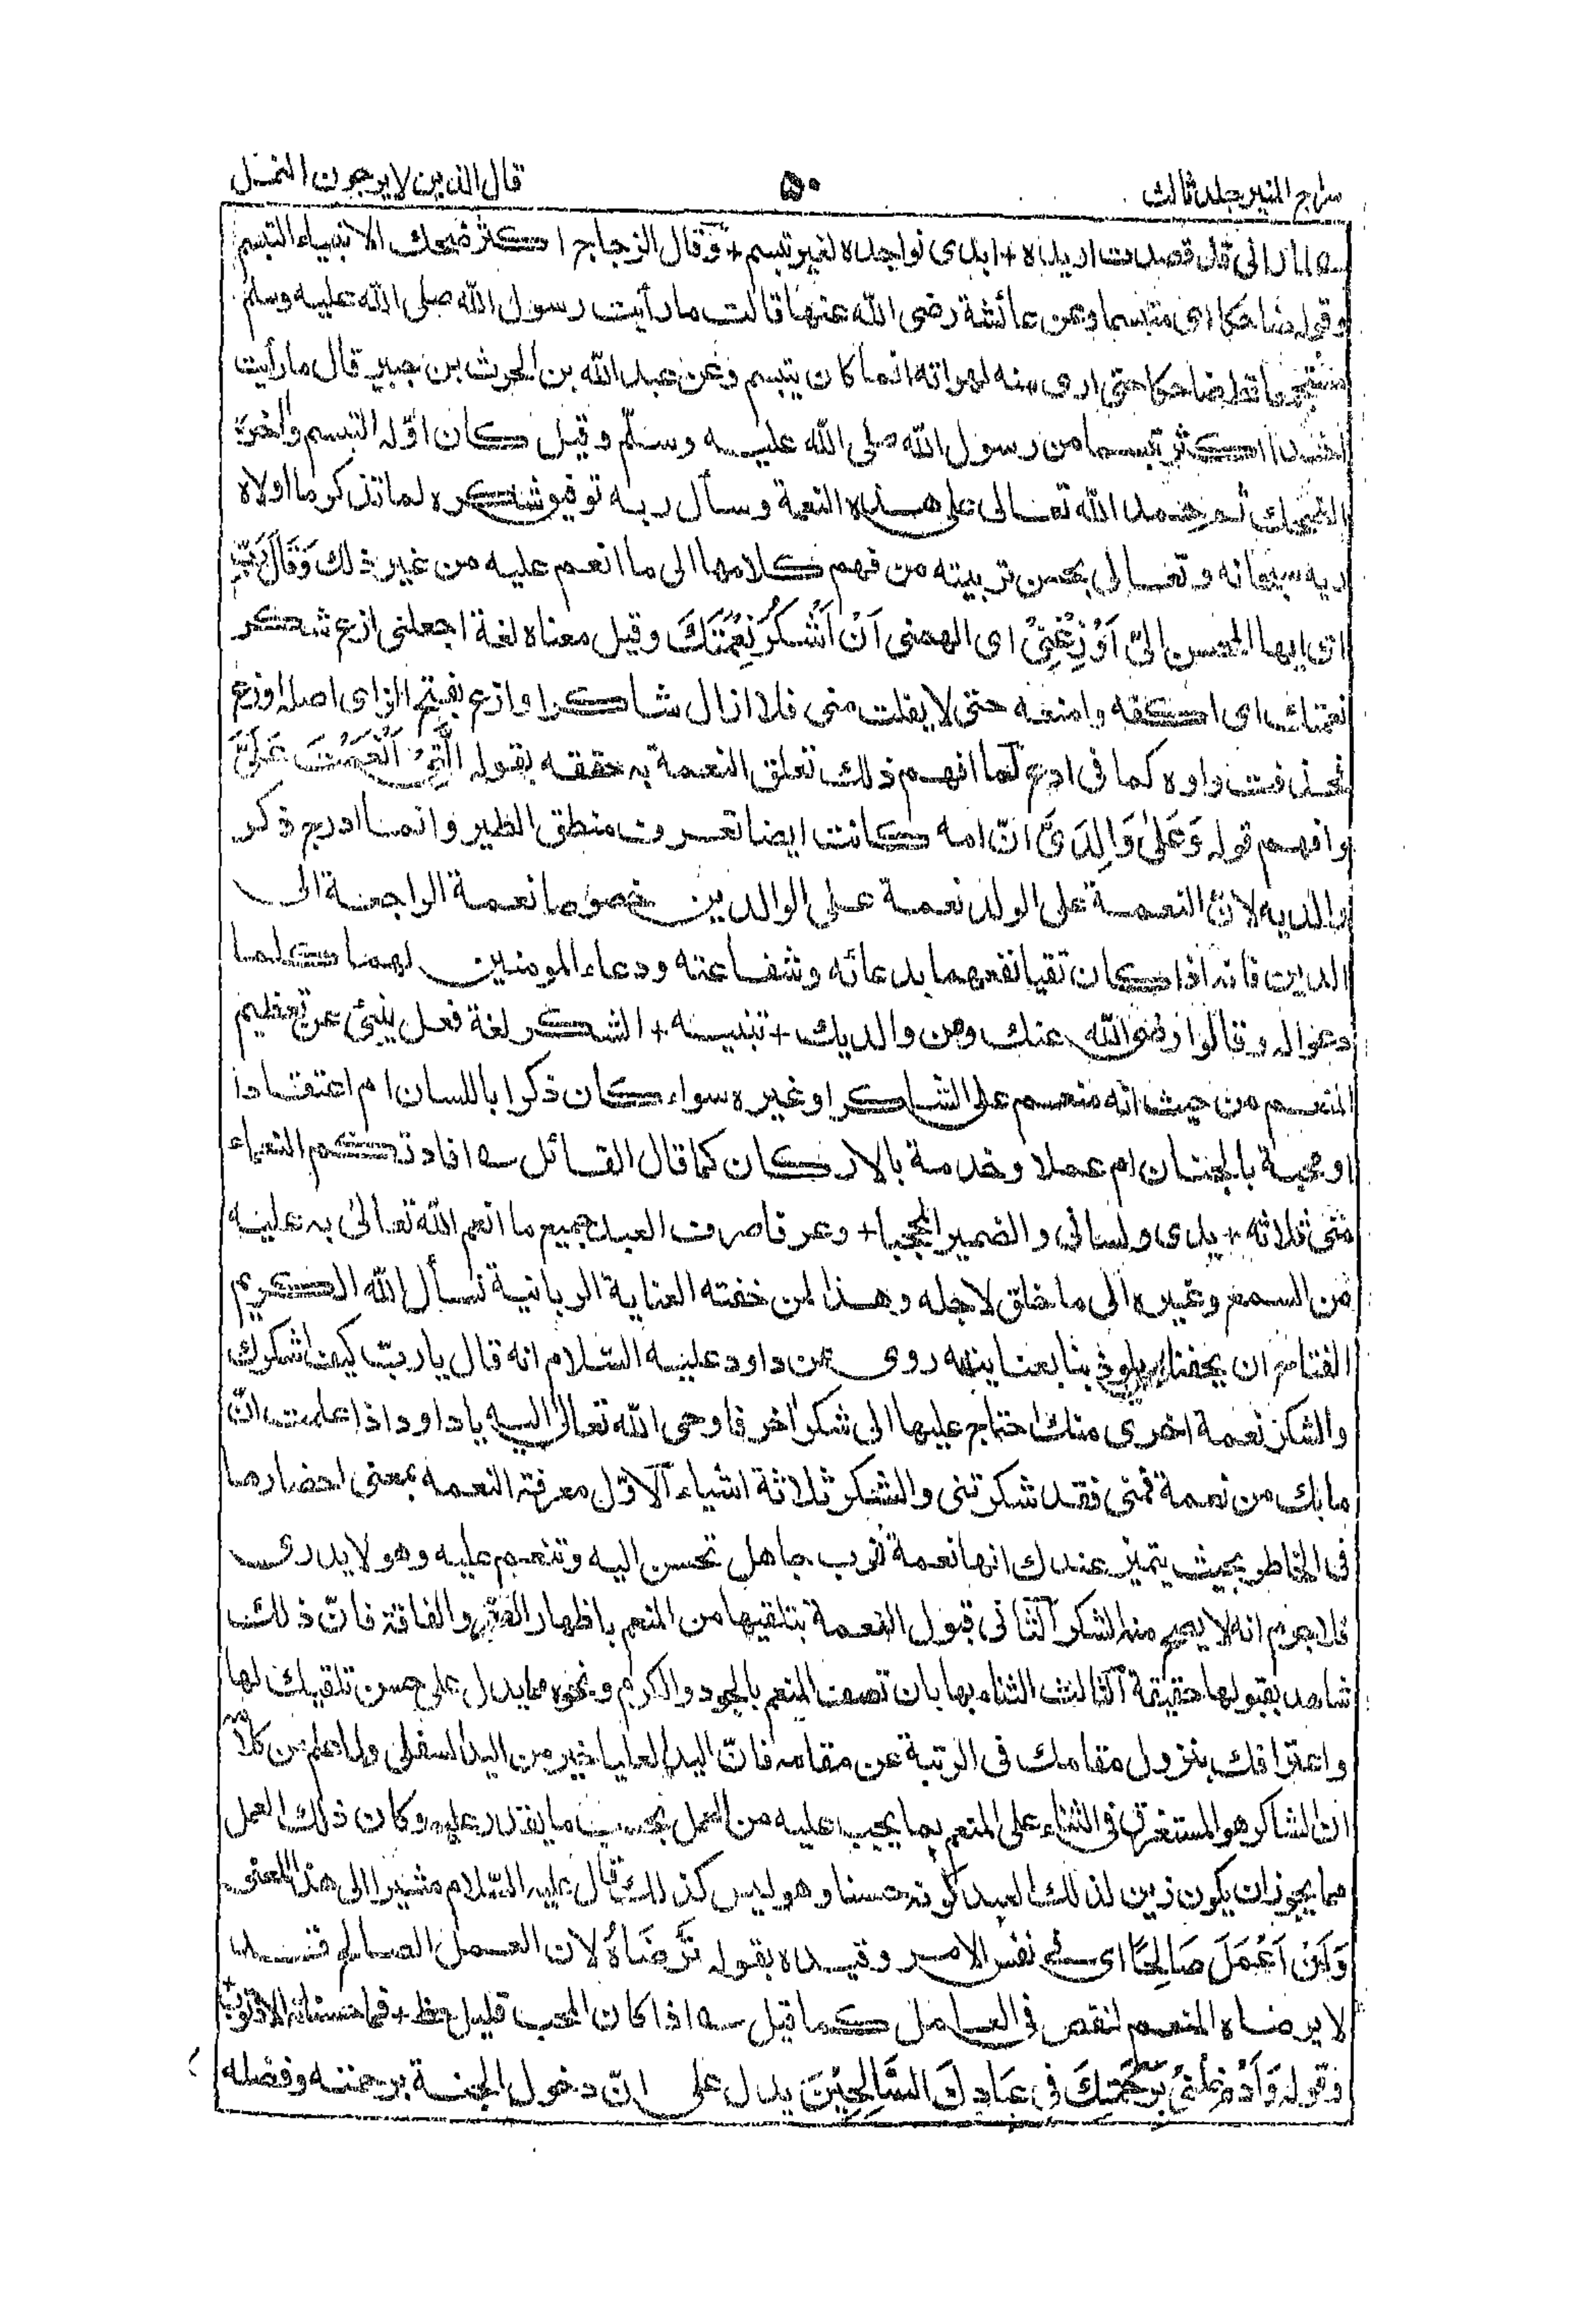 سراج المنير جلد ثالث
۵۰
قال الذين لا يرجون النمل
لما رانى قد قصدت اريده + ابدى نواجذه لغير تبسم + وقال الزجاج اكثر ضحك الانبياء التبسم
وقوله ضاحكا اى متبسما وعن عائشة رضى الله عنها قالت ما رأيت رسول الله صلى الله عليه وسلم
مستجمعا قط ضاحكا حتى ارى منه لهواته انما كان يتبسم وعن عبد الله بن الحرث بن جبير قال ما رأيت
احدا اكثر تبسما من رسول الله صلى الله عليه وسلّم وقيل كان اوّله التبسم واخره
الضحك ثم حمد الله تعالى على هذه النعمة وسأل ربه توفيق شكره لما تذكر ما اولاه
ربه سبحانه وتعالى بحسن تربيته من فهم كلامها الى ما انعم عليه من غير ذلك وَقَالَ رَبِّ
اى ايها المحسن الىّ اَوْزِعْنِىْ اى الهمنى اَنْ اَشْكُرَ نِعْمَتَكَ وقيل معناه لغة اجعلنى ازع شكر
نعمتك اى اكفه وامنعه حتى لا يفلت منى فلا ازال شاكرا وازع بفتح الزاى اصله اوزع
فحذفت واوه كما فى ادع لما افهم ذلك تعلق النعمة به حققه بقوله الَّتِىْ اَنْعَمْتَ عَلَىَّ
وافهم قوله وَعَلىٰ وَالِدَىَّ انّ امه كانت ايضا تعرف منطق الطير وانما ادرج ذكر
والديه لانّ النعمة على الولد نعمة على الوالدين خصوصا نعمة الراجعة الى
الدين فانه اذا كان تقيا نفعهما بدعائه وشفاعته ودعاء المومنين لهما كلما
دعوا له وقالوا رضى الله عنك وعن والديك + تنبيه + الشكر لغة فعل ينبئ عن تعظيم
المنعم من حيث انه منعم على الشاكر او غيره سواء كان ذكرا باللسان ام اعتقادا
او محبة بالجنان ام عملا وخدمة بالاركان كما قال القائل افادتكم النعماء
منى ثلاثة + يدى ولسانى والضمير المحجبا + وعرفا صرف العبد جميع ما انعم الله تعالىٰ به عليه
من السمع وغيره الى ما خلق لاجله وهذا لمن حفته العناية الربانية نسأل الله الكريم
الفتاح ان يحفنا بعنايته روى عن داود عليه السّلام انه قال يا ربّ كيف اشكرك
والشكر نعمة اخرى منك احتاج عليها الى شكر اخر فاوحى الله تعالىٰ اليه يا داود اذا علمت انّ
ما بك من نعمة فمنى فقد شكرتنى والشكر ثلاثة اشياء الاوّل معرفة النعمه بمعنى احضارها
فى الخاطر بحيث يتميز عندك انها نعمة فرب جاهل تحسن اليه وتنعم عليه وهو لا يدرى
فلا جرم انه لا يصح منه الشكر الثانى قبول النعمة بتلقيها من المنعم باظهار الفقر والفاقة فانّ ذلك
شاهد بقبولها حقيقة الثالث الثناء بها بان تصف المنعم بالجود والكرم ونحوه مما يدل على حسن تلقيك لها
واعترافك بنزول مقامك فى الرتبة عن مقامه فانّ اليد العليا خير من اليد السفلى ولما علم من كلامه
ان الشاكر هو المستغرق فى الثناء على المنعم بما يجب عليه من العمل بحسب ما يقدر عليه وكان ذلك العمل
مما يجوز ان يكون زين لذلك العبد كونه حسنا وهو ليس كذلك قال عليه السّلام مشيرا الى هذا المعنى
وَاَنْ اَعْمَلَ صَالِحًا اى فى نفس الامر وقيده بقوله تَرْضَاهُ لان العمل الصالح قد
لا يرضاه المنعم لنقص فى العامل كما قيل اذا كان المحب قليل حظ + فما حسناته الا ذنوب
وقوله وَاَدْخِلْنِىْ بِرَحْمَتِكَ فِى عِبَادِكَ الصَّالِحِيْنَ يدل على انّ دخول الجنة برحمته وفضله